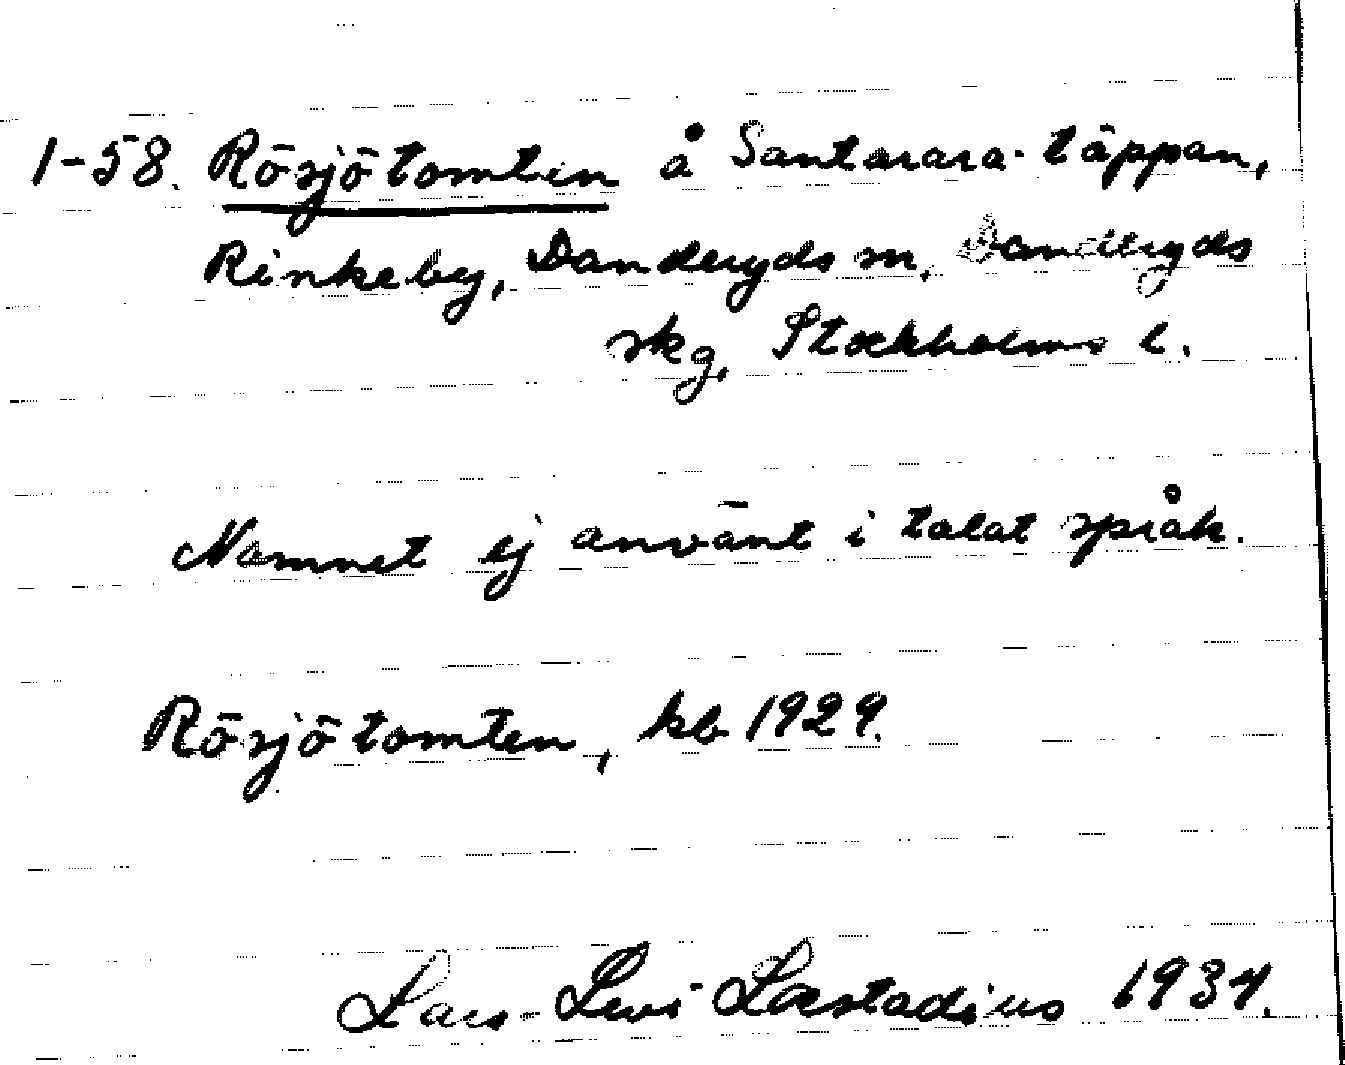 1-58. Rösjötomten å Santarara-täppan,
Rinkeby, Danderyds sn, Danderyds
skg, Stockholms l.
Namnet ej använt i talat språk.
Rösjötomten, kb 1929.
Lars-Levi Læstadius 1934.